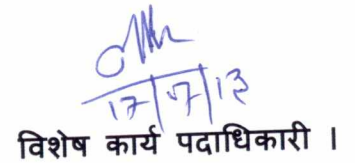 17/7/13
विशेष कार्य पदाधिकारी ।